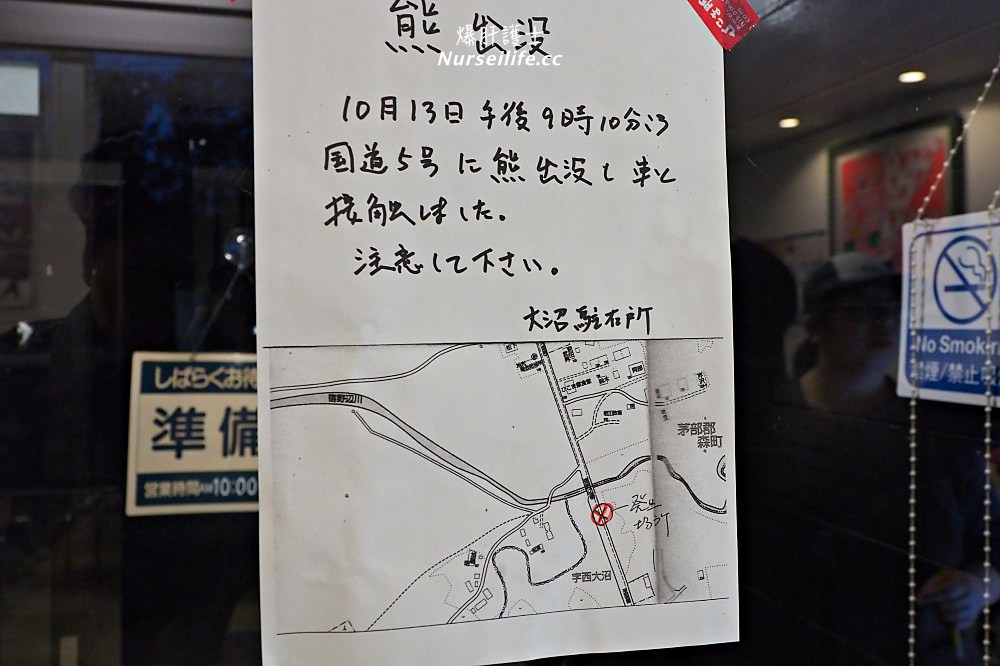 熊出没
爆肝護士
Nurseilife.cc
10月13日午後9時10分ころ
国道5号に熊出没し車と
接触しました。
注意して下さい。
大沼駐在所
宿野辺川
茅部郡
森町
発生
場所
字西大沼
しばらくお待
準備
営業時間AM10:00
No Smokin
禁煙/禁止吸